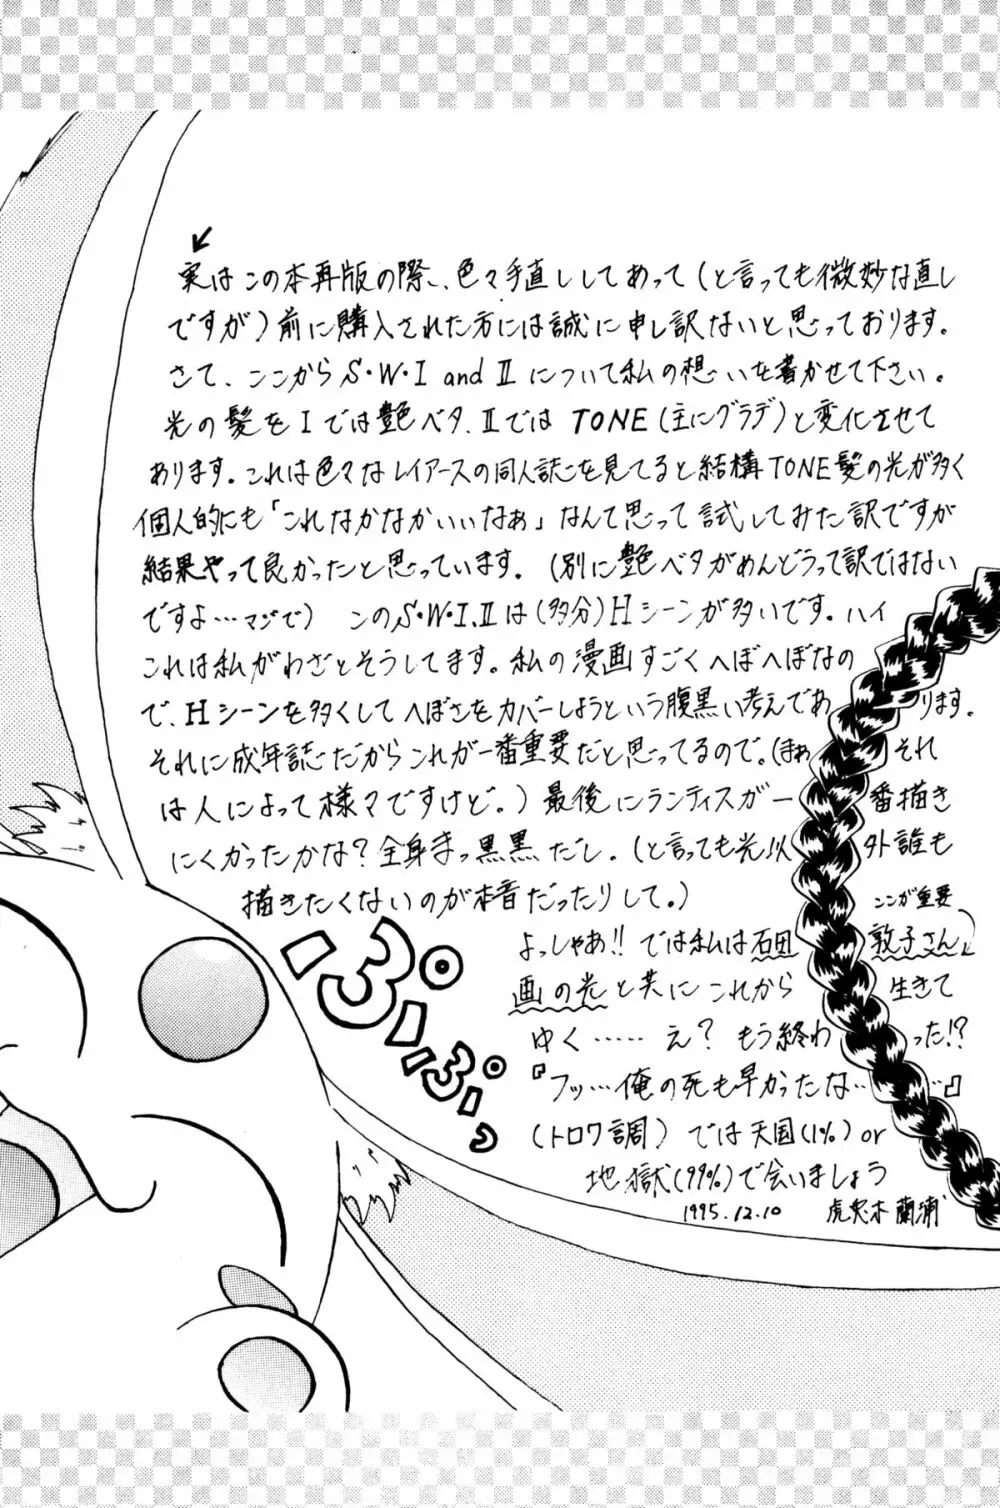 実はこの本再版の際、色々手直ししてあって(と言っても微妙な直し
ですが)前に購入された方には誠に申し訳ないと思っております。
さて、ここからS・W・I and IIについて私の想いを書かせて下さい。
光の髪をIでは艶ベタ、IIではTONE(主にグラデ)と変化させて
あります。これは色々なレイアースの同人誌を見てると結構TONE髪の光が多く
個人的にも「これなかなかいいなぁ」なんて思って試してみた訳ですが
結果やって良かったと思っています。(別に艶ベタがめんどうって訳ではない
ですよ…マジで) このS・W・I、IIは(多分)Hシーンが多いです。ハイ
これは私がわざとそうしてます。私の漫画すごくへぼへぼなの
で、Hシーンを多くしてへぼさをカバーしようという腹黒い考えであります。
それに成年誌だからこれが一番重要だと思ってるので。(まぁそれ
は人によって様々ですけど。)最後にランティスが一番描き
にくかったかな?全身まっ黒黒だし。(と言っても光以外誰も
描きたくないのが本音だったりして。)
ぷぷぷぷ
ココが重要
よっしゃあ!!では私は石田敦子さん
画の光と共にこれから生きて
ゆく……え?もう終わった!?
『フッ…俺の死も早かったな……』
(トロワ調)では天国(1%)or
地獄(99%)で会いましょう
1995.12.10 虎兎木 蘭浦